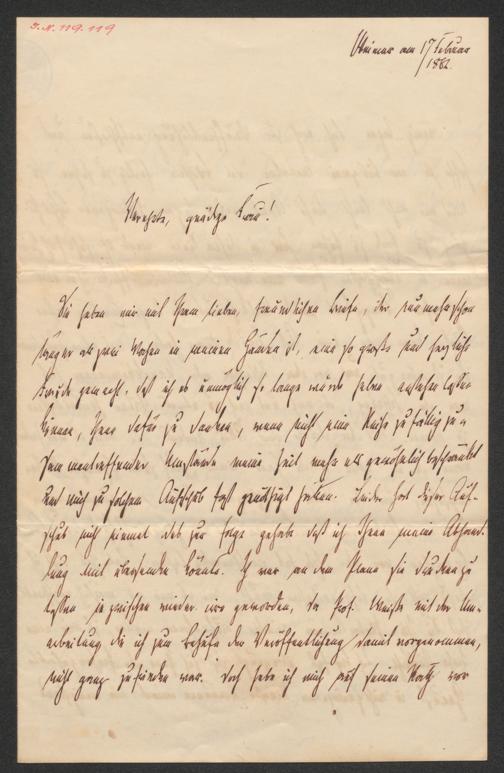 I.N. 119.119
Weimar am 17 Februar
1882.
Verehrte, gnädige Frau!
Sie haben mir mit Ihrem lieben, freundlichen Briefe, der nun mehr schon
länger als zwei Wochen in meinen Händen ist, eine so große und herzliche
Freude gemacht, daß ich es unmöglich so lange würde haben anstehen lassen
können, Ihnen dafür zu danken, wenn nicht eine Reihe zufällig zu-
sammentreffender Umstände meine Zeit mehr als gewöhnlich beschränkt
und mich zu solchem Aufschub fast genöthigt hätten. Leider hat dieser Auf-
schub nicht einmal das zur Folge gehabt daß ich Ihnen meine Abhand-
lung mit übersenden könnte. Ich war an dem Plane sie drucken zu
lassen inzwischen wieder irre geworden, da Prof. mit der Um-
arbeitung die ich zum Behufe der Veröffentlichung damit vorgenommen,
nicht ganz zufrieden war. Doch habe ich mich auf seinen Rath vor